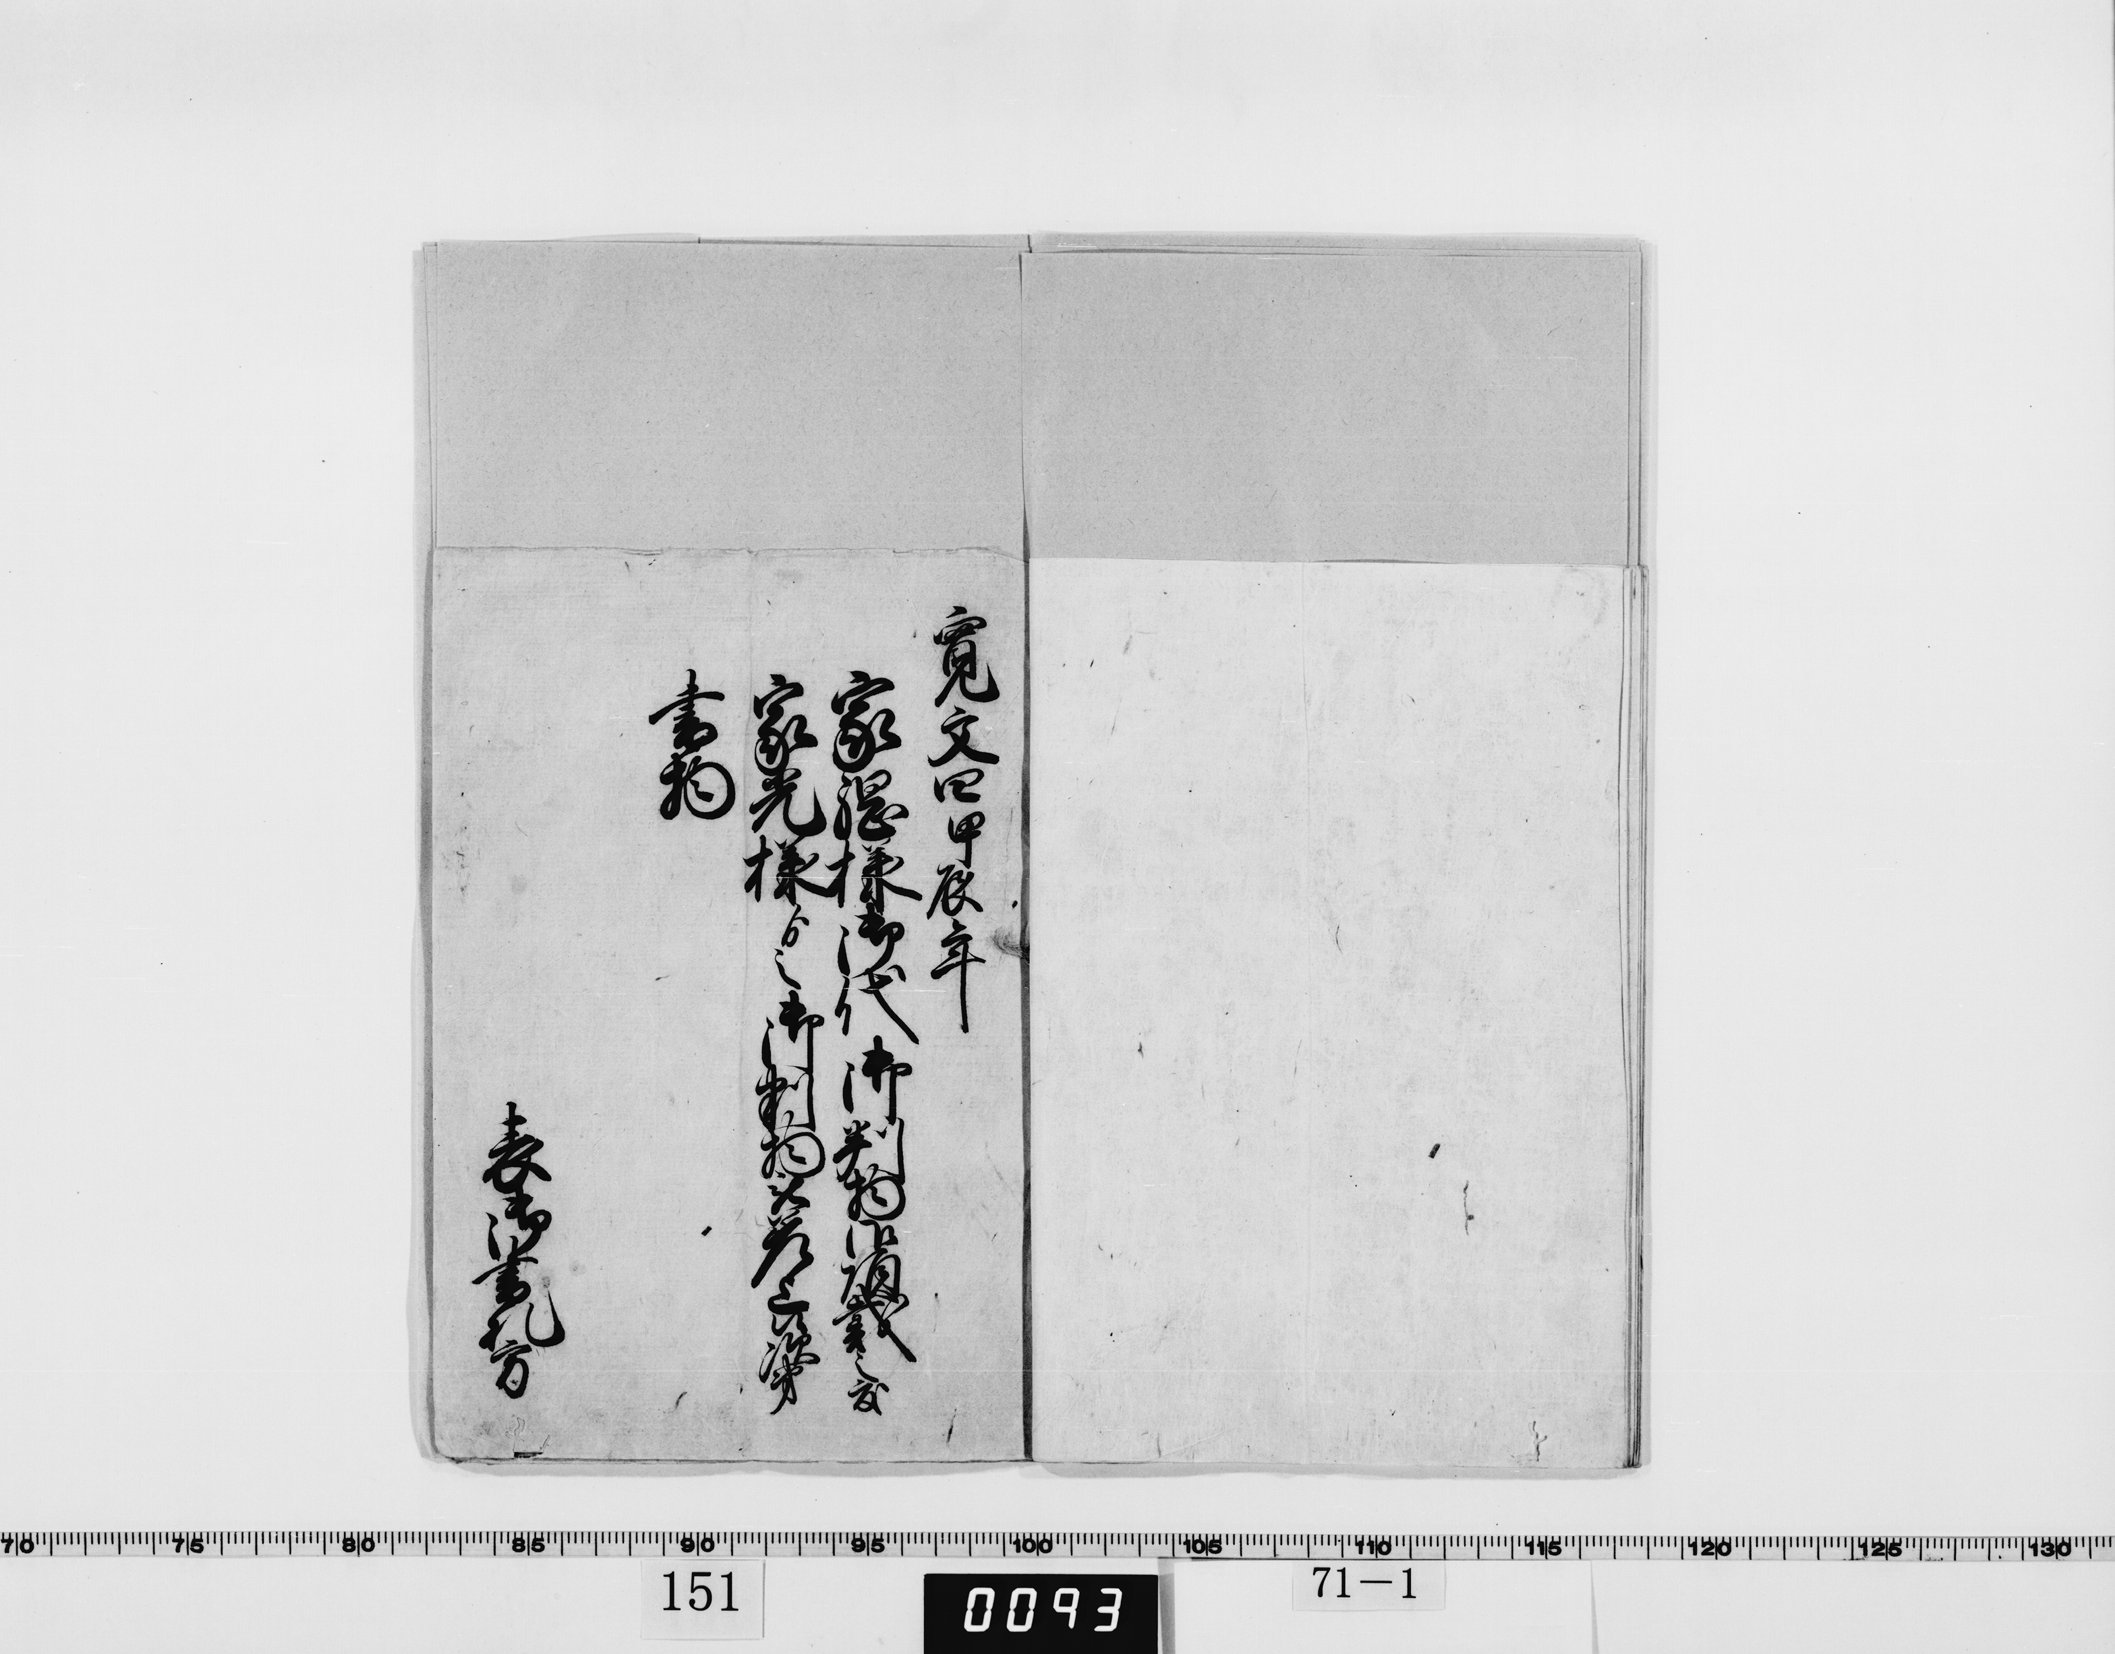 寛文四甲辰年
家綱様御代御判物御頂戴之節
家光様ゟ之御判物
書物
表御書札方
70 75 80 85 90 95 100 105 110 115 120 125 130
151
0093
71-1